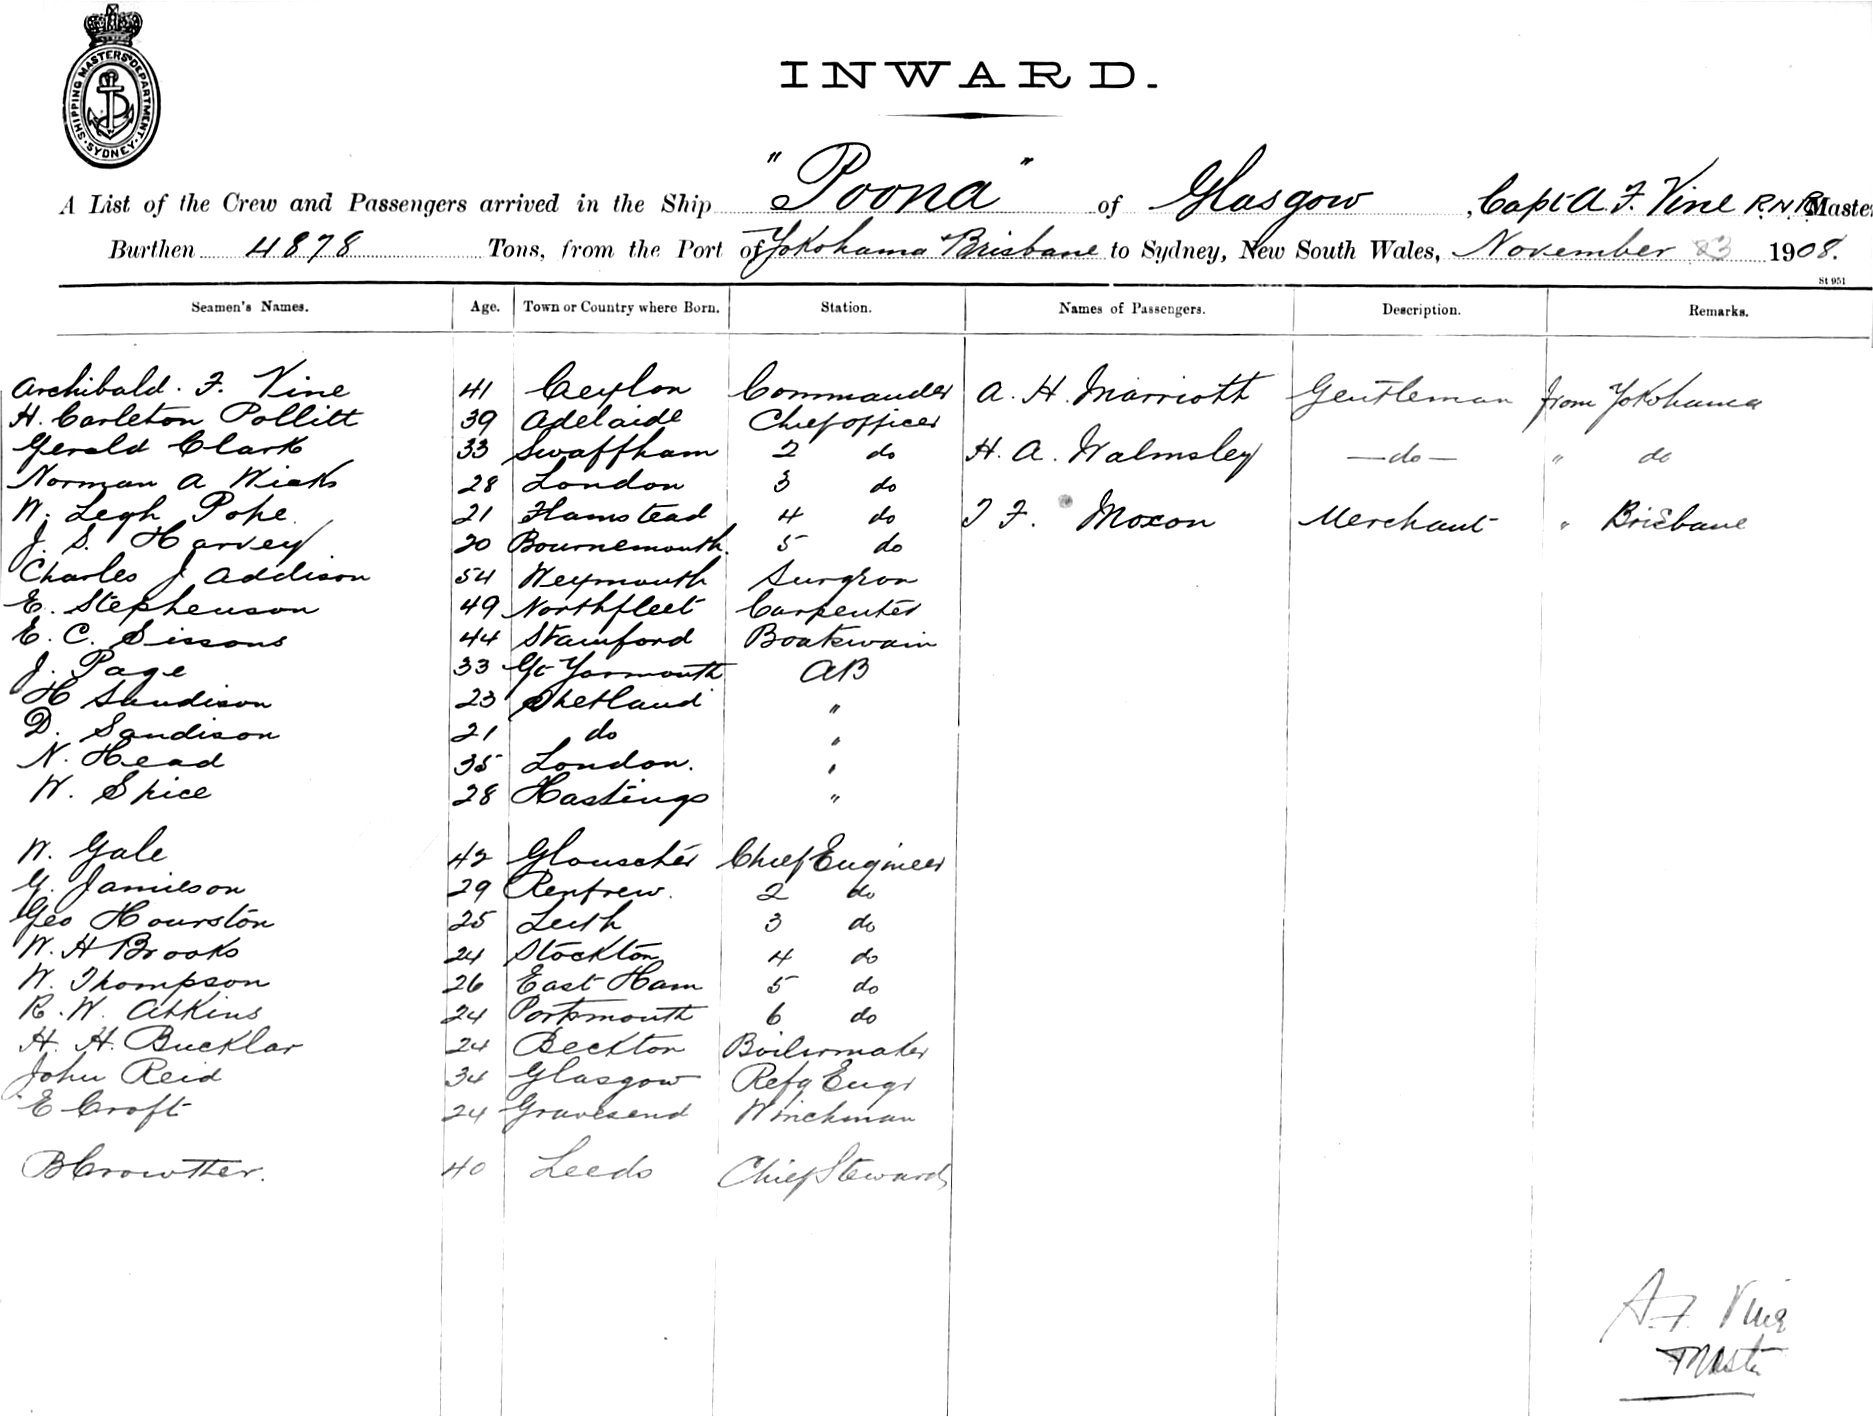 SHIPPING MASTERS DEPARTMENT SYDNEY
INWARD.
A List of the Crew and Passengers arrived in the Ship "Poona" of Glasgow, Capt A. F. Vine R.N.R. Master
Burthen 4878 Tons, from the Port of Yokohama Brisbane to Sydney, New South Wales, November 23 1908.
St 951
Seamen's Names. Age. Town or Country where Born. Station. Names of Passengers. Description. Remarks.
Archibald. F. Vine 41 Ceylon Commander A. H. Marriott Gentleman from Yokohama
H. Carleton Pollitt 39 Adelaide Chief officer
Gerald Clark 33 Swaffham 2 do H. A. Walmsley —do— " do
Norman A Wicks 28 London 3 do
W. Legh Pope. 21 Hamstead 4 do T F. Moxon Merchant " Brisbane
J. S. Harvey 20 Bournemouth. 5 do
Charles J Addison 54 Weymouth Surgeon
E. Stephenson 49 Northfleet Carpenter
E. C. Sissons 44 Stamford Boatswain
J. Page 33 Gt Yarmouth AB
H Sandison 23 Shetland "
D. Sandison 21 do "
N. Head 35 London. "
W. Spice 28 Hastings "
W. Gale 42 Glouscher Chief Engineer
G. Jamieson 29 Renfrew. 2 do
Geo Hourston 25 Leith 3 do
W. H Brooks 24 Stockton 4 do
W. Thompson 26 East Ham 5 do
R. W. Atkins 24 Portsmouth 6 do
H. H. Bucklar 24 Beckton Boilermaker
John Reid 34 Glasgow Refg Engr
E Croft 24 Gravesend Winchman
B Crowther. 40 Leeds Chief Steward
A. F. Vine
Master